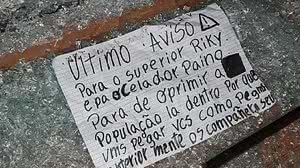 Vitimo AviSo
Para o superior Riky
e pa o celador Paino
Para de oprimir a
População la dentro Por que
vms Pegar vcs como Pegamo
interior mente os companhera seu